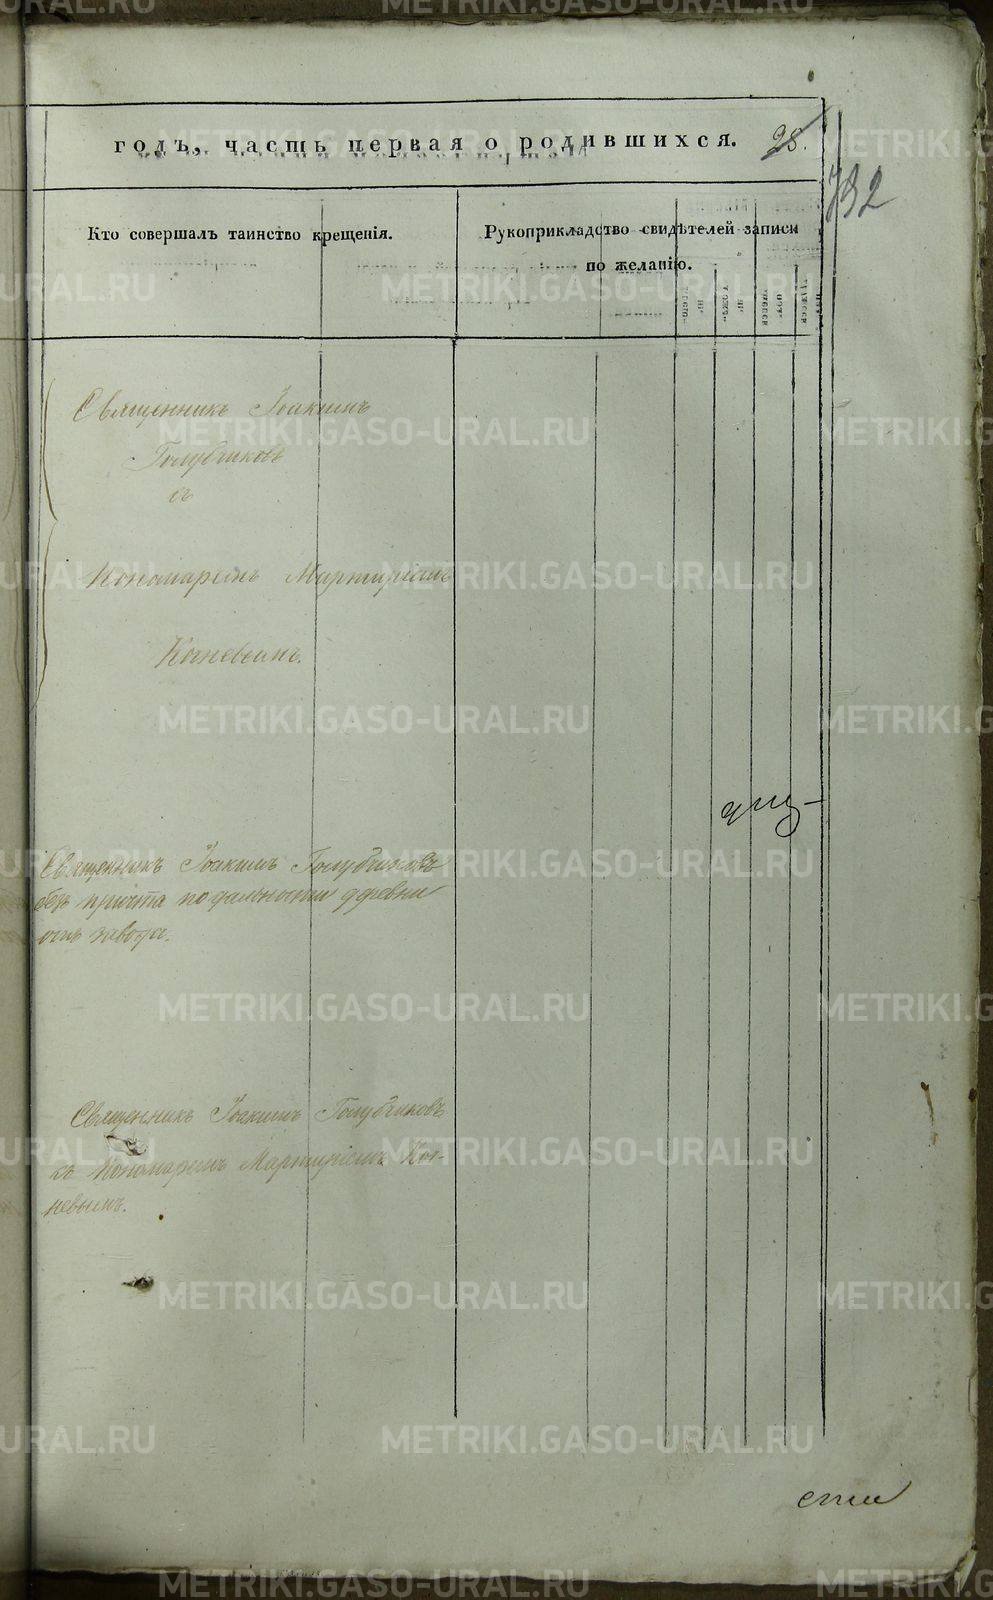 годъ, часть первая о родившихся. 28.
792
Кто совершалъ таинство крещенія.
Рукоприкладство свидѣтелей записи
по желанію.
Священникъ Іоакимъ
Голубчиковъ
съ
Кономаремъ Мартиріемъ
Коневымъ.
Священникъ Іоакимъ Голубчиковъ
безъ причта по дальности деревни
отъ завода.
Священникъ Іоакимъ Голубчиковъ
съ Кономаремъ Мартиріемъ Ко-
невымъ.
METRIKI.GASO-URAL.RU